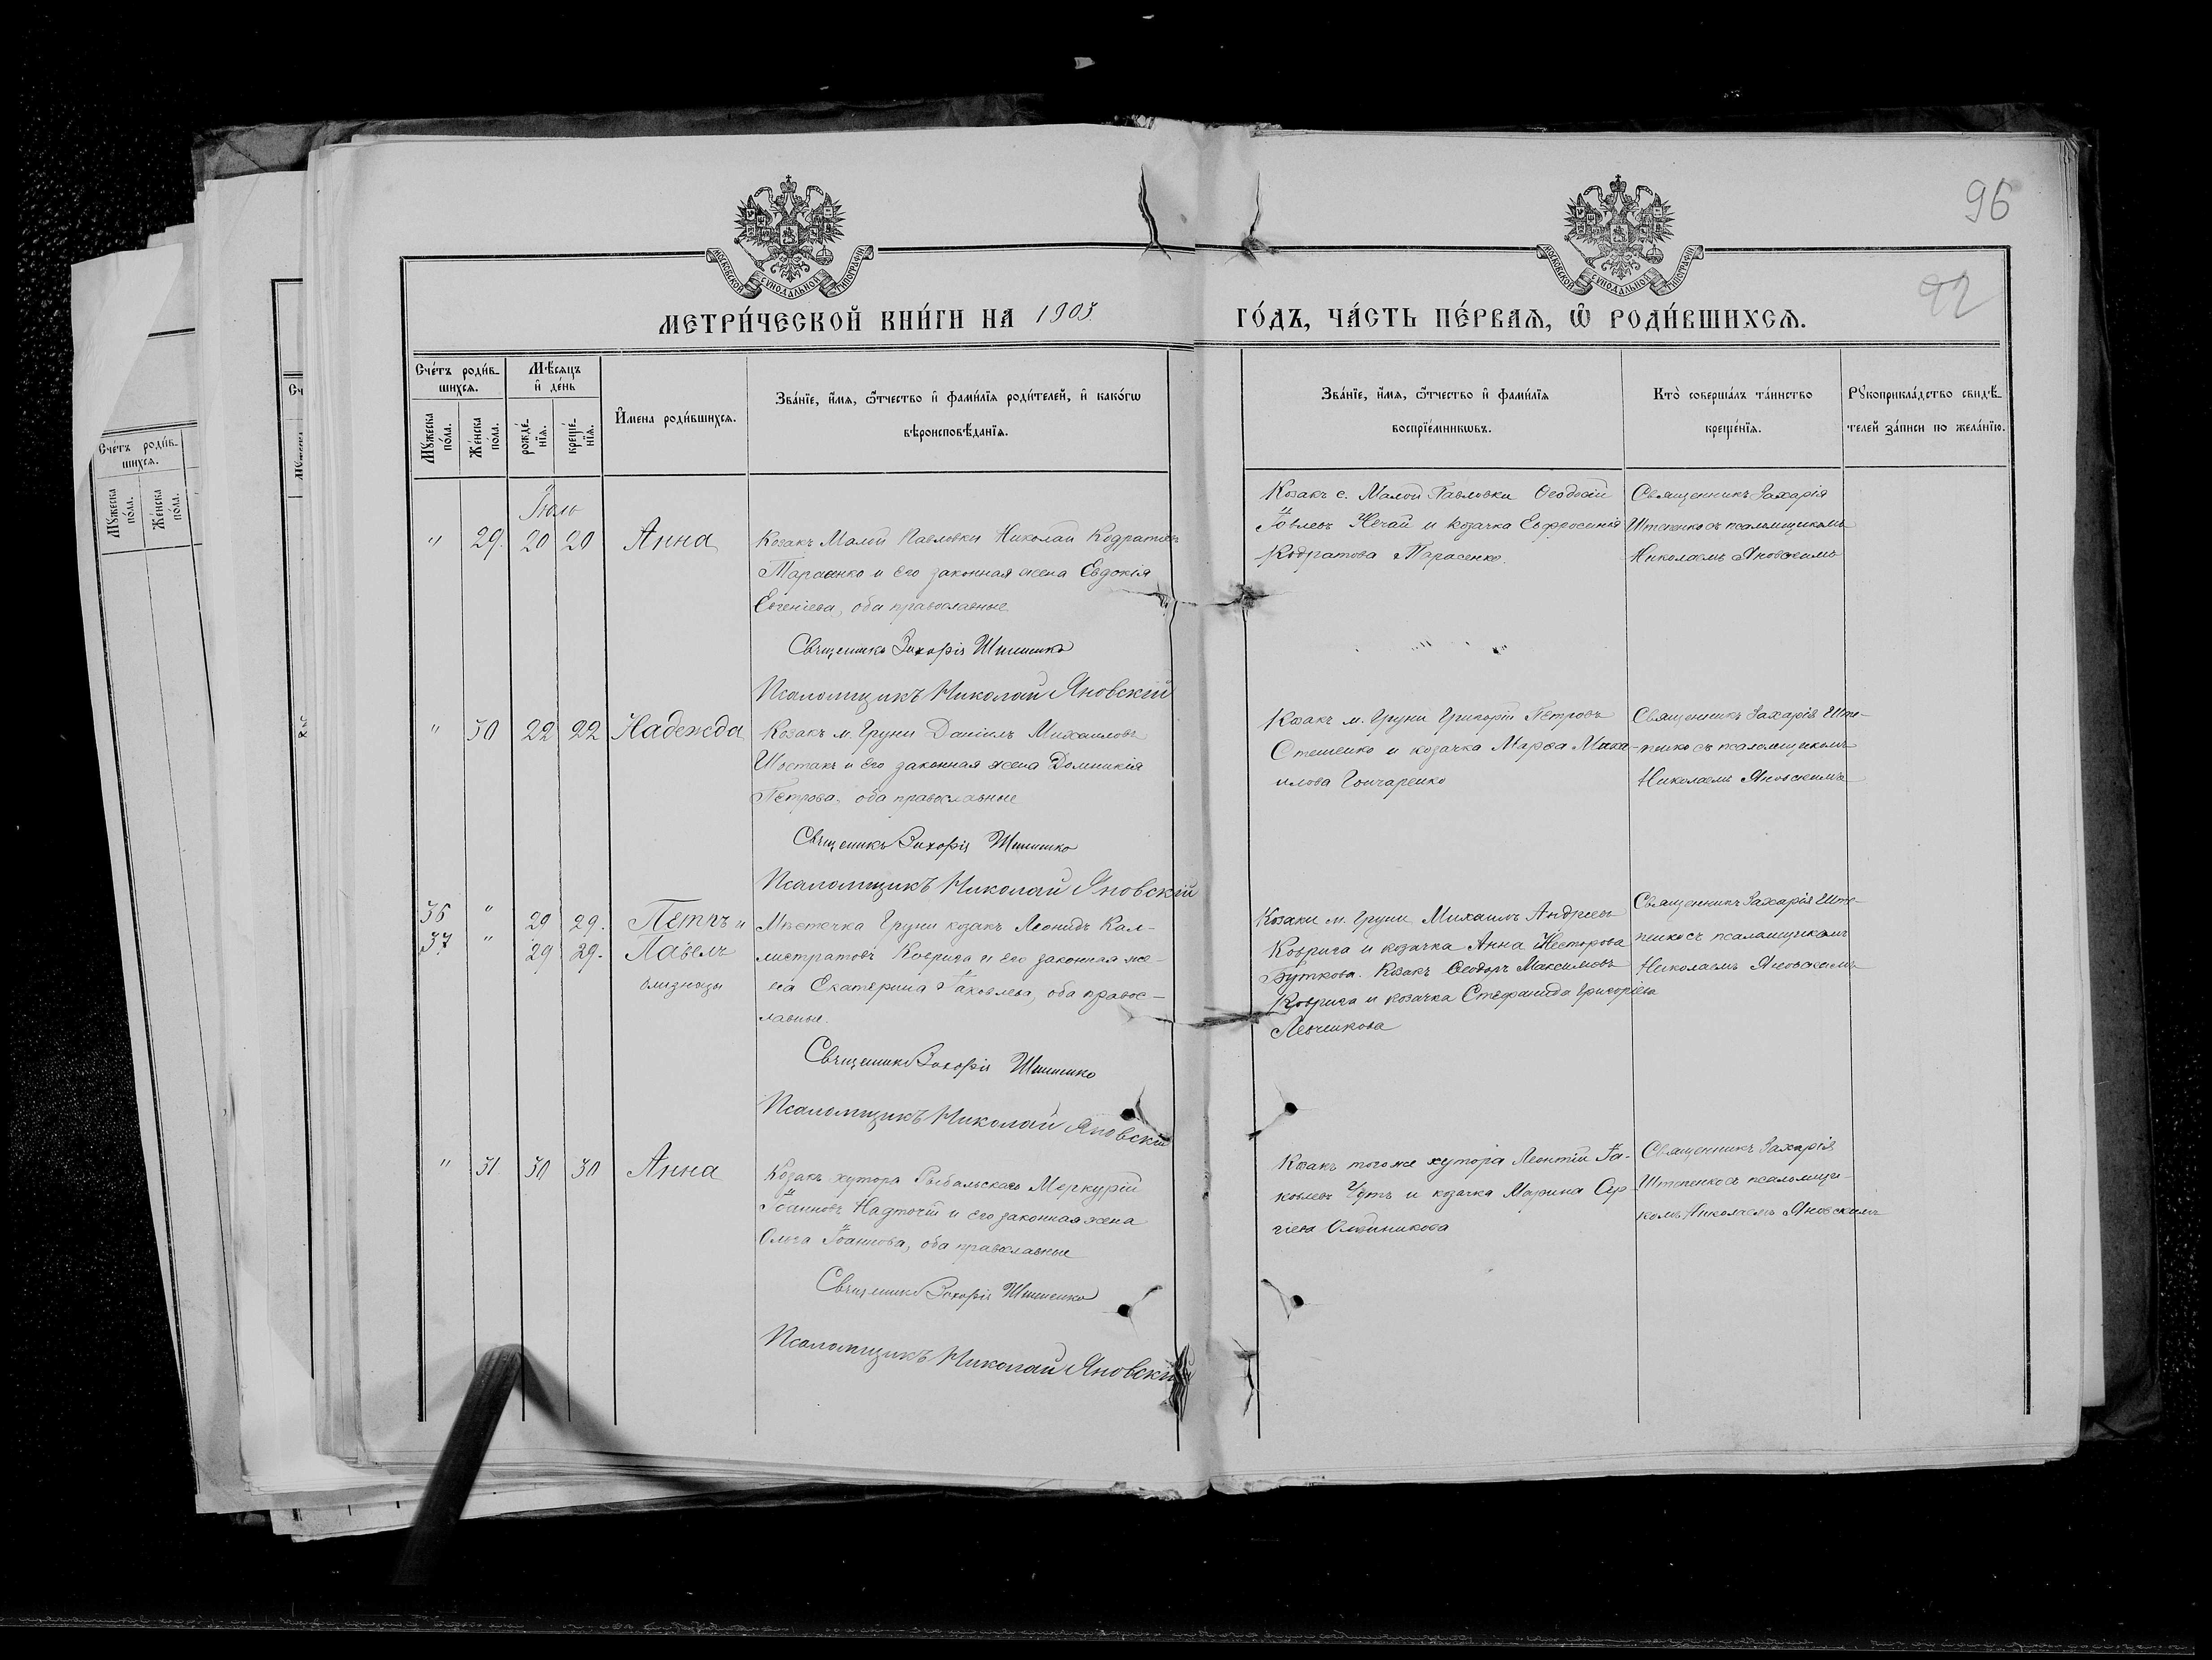 96
92
МОСКОВСКОЙ СѴНОДАЛЬНОЙ ТИПОГРАФІИ
МОСКОВСКОЙ СѴНОДАЛЬНОЙ ТИПОГРАФІИ
МЕТРИ́ЧЕСКОЙ КНИ́ГИ НА 1903 ГО́ДЪ, ЧА́СТЬ ПЕ́РВАѦ, Ѿ РОДИ́ВШИХСѦ.
Сче́тъ роди́в-
шихсѧ.
Мꙋ́жеска
по́ла.
Же́нска
по́ла.
Мѣ́сѧцъ
и҆ де́нь
рожде́-
нїѧ.
креще́-
нїѧ.
И҆мена роди́вшихсѧ.
Зва́нїе, и҆́мѧ, ѻ҆́тчество и҆ фами́лїѧ роди́телей, и҆ како́гѡ
вѣроисповѣ́данїѧ.
Зва́нїе, и҆́мѧ, ѻ҆́тчество и҆ фами́лїѧ
воспрїе́мникѡвъ.
Кто̀ соверша́лъ та́инство
креще́нїѧ.
Рꙋкоприкла́дство свидѣ́-
телей за́писи по жела́нїю.
Сче́тъ роди́в-
шихсѧ.
Мꙋ́жеска
по́ла.
Же́нска
по́ла.
Іюль
" 29. 20 20 Анна
Козакъ Малой Павловки Николай Кодратовъ
Тарасенко и его законная жена Евдокія
Евгеніева, оба православные
Священникъ Захарія Штепенко
Псаломщикъ Николай Яновскій
Козакъ с. Малой Павловки Ѳеодосій
Іовлевъ Нечай и козачка Евфросинія
Кодратова Тарасенко.
Священникъ Захарія
Штепенко съ псаломщикомъ
Николаемъ Яновскимъ
" 30 22 22 Надежда
Козакъ м. Груни Даніилъ Михаиловъ
Шостакъ и его законная жена Домникія
Петрова, оба православные
Священникъ Захарія Штепенко
Псаломщикъ Николай Яновскій
Козакъ м. Груни Григорій Петровъ
Стешенко и козачка Марѳа Миха-
илова Гончаренко
Священникъ Захарія Ште-
пенко съ псаломщикомъ
Николаемъ Яновскимъ
36 " 29 29. Петръ и
37 " 29 29. Павелъ
близнецы
Мѣстечка Груни козакъ Леонидъ Кал-
листратовъ Коврига и его законная же-
на Екатерина Іаковлева, оба правос-
лавные.
Священникъ Захарія Штепенко
Псаломщикъ Николай Яновскій
Козаки м. Груни Михаилъ Андреевъ
Коврига и козачка Анна Несторова
Буткова. Козакъ Ѳеодоръ Максимовъ
Коврига и козачка Стефанида Григоріева
Левченкова
Священникъ Захарія Ште-
пенко съ псаломщикомъ
Николаемъ Яновскимъ
" 31 30 30 Анна
Козакъ хутора Рыбальскаго Меркурій
Іоанновъ Надточій и его законная жена
Ольга Іоаннова, оба православные
Священникъ Захарія Штепенко
Псаломщикъ Николай Яновскій
Козакъ того же хутора Леонтій Іа-
ковлевъ и козачка Марина Сер-
гіева Олейникова
Священникъ Захарія
Штепенко съ псаломщи-
комъ Николаемъ Яновскимъ